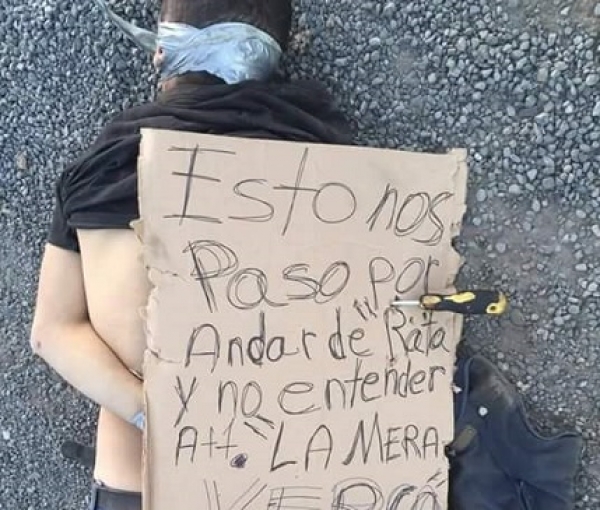 Esto nos
Paso por
Andar de "Rata
y no entender
Att. LA MERA